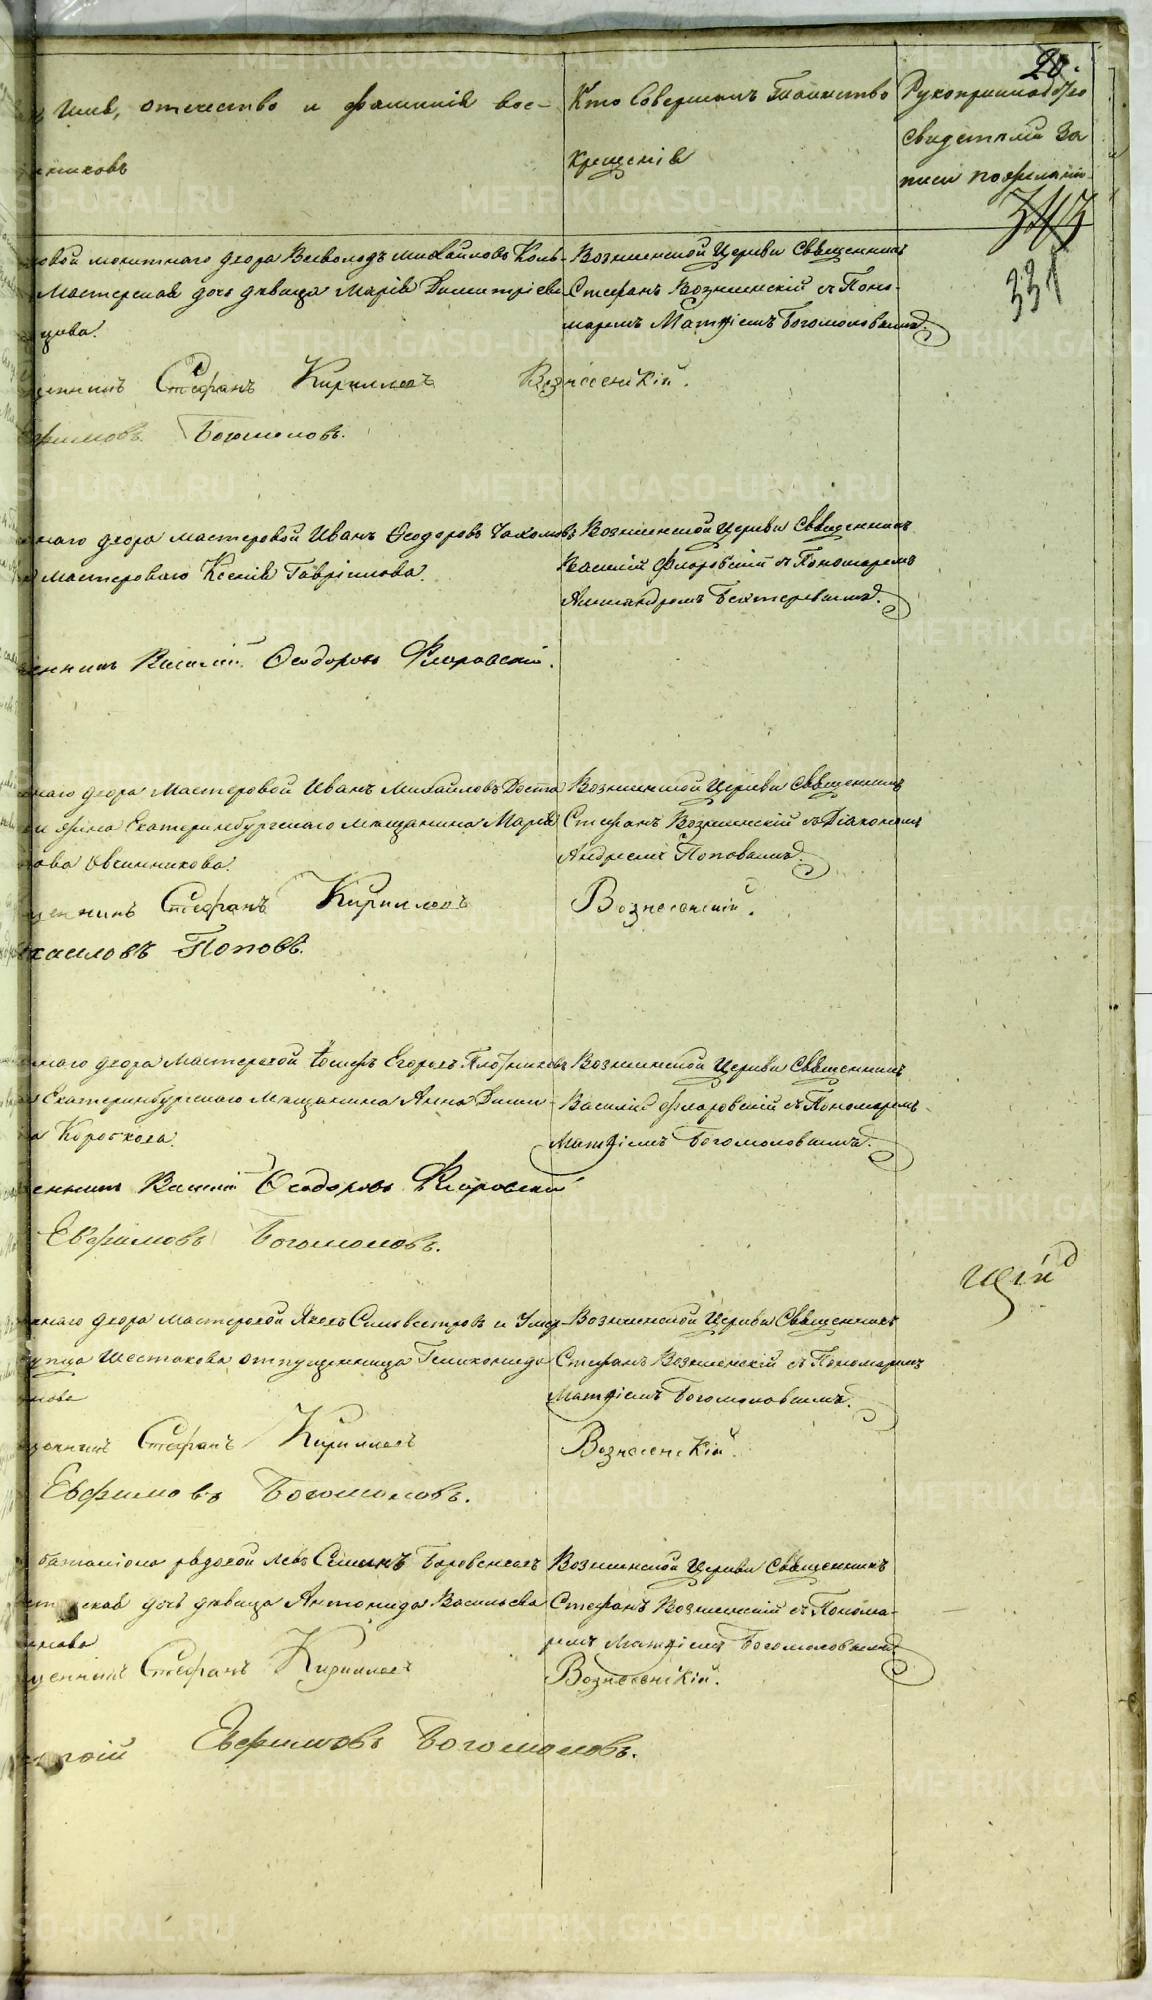 20.
имя, отечество и фамилія вос-
никовъ
Кто совершалъ Таинство
крещенія
Рукоприкладство
свидетелей за
писи по желанію
343
331
двора Всеволодъ Михайловъ
Мастерская дочь девица Марія Димитріева
цова.
Вознесенской Церкви Священникъ
Стефанъ Вознесенскій съ Поно-
маремъ Матѳіемъ Богомоловымъ.
щенникъ Стефанъ Кирилловъ Вознесенскій.
фимовъ Богомоловъ.
наго двора мастеровой Иванъ Ѳеодоровъ
мастероваго Ксенія Гавріилова.
Вознесенской Церкви Священникъ
Василій Флоровскій съ Пономаремъ
Александромъ Бехтеревымъ.
щенникъ Василій Ѳеодоровъ Флоровскій.
наго двора Мастеровой Иванъ Михайловъ
Екатеринбургскаго Мещанина Марія
Овчинникова.
Вознесенской Церкви Священникъ
Стефанъ Вознесенскій съ Діакономъ
Андреемъ Поповымъ.
щенникъ Стефанъ Кирилловъ Вознесенскій.
хаиловъ Поповъ.
наго двора Мастеровой Іосифъ Егоровъ Плотниковъ
Екатеринбургскаго Мещанина Анна Дими-
Короткова.
Вознесенской Церкви Священникъ
Василій Флоровскій съ Пономаремъ
Матѳіемъ Богомоловымъ.
щенникъ Василій Ѳеодоровъ Флоровскій
Евфимовъ Богомоловъ.
наго двора мастеровой Яковъ Сильвестровъ и
купца Шестакова отпущенница Гликонида
нова
Вознесенской Церкви Священникъ
Стефанъ Вознесенскій съ Пономаремъ
Матѳіемъ Богомоловымъ.
щенникъ Стефанъ Кирилловъ Вознесенскій.
Евфимовъ Богомоловъ.
баталіона рядовой Левъ Семенъ
ская дочь девица Антонида Васильева
Вознесенской Церкви Священникъ
Стефанъ Вознесенскій съ Понома-
ремъ Матѳіемъ Богомоловымъ.
щенникъ Стефанъ Кирилловъ Вознесенскій.
Евфимовъ Богомоловъ.
METRIKI.GASO-URAL.RU